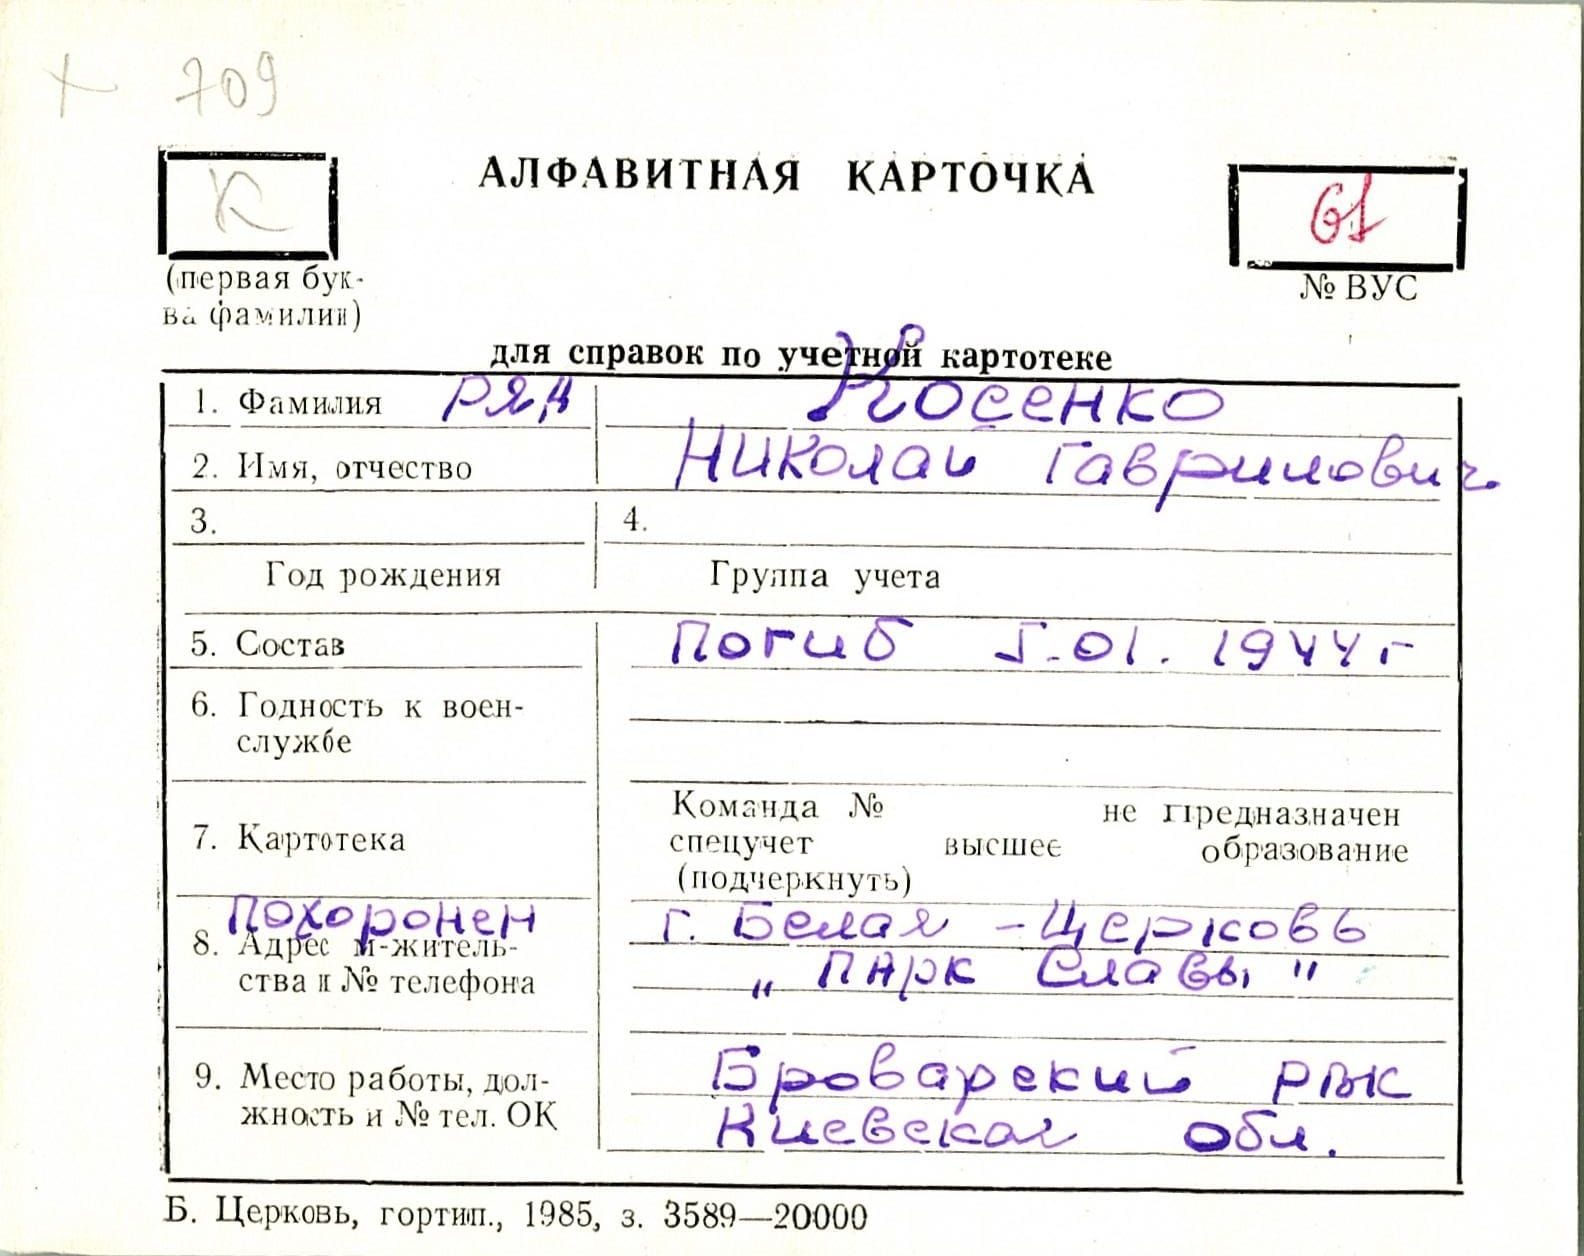 709
К
АЛФАВИТНАЯ КАРТОЧКА
61
(первая бук-
ва фамилии)
№ ВУС
для справок по учетной картотеке
1. Фамилия РЯД Косенко
2. Имя, отчество Николай Гаврилович.
3. 4.
Год рождения Группа учета
5. Состав Погиб 5.01.1944г
6. Годность к воен-
службе
7. Картотека
Команда № не предназначен
спецучет высшее образование
(подчеркнуть)
Похоронен г. Белая-Церковь
8. Адрес м-житель-
ства и № телефона
„Парк Славы"
9. Место работы, дол-
жность и № тел. ОК
Броварский РВК
Киевская обл.
Б. Церковь, гортип., 1985, з. 3589—20000